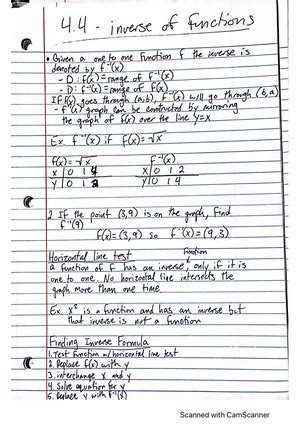 4.4 - inverse of functions
• Given a one to one function f the inverse is
denoted by f⁻¹(x)
- D: f(x) = range of f⁻¹(x)
- D: f⁻¹(x) = range of f(x)
If f(x) goes through (a,b), f⁻¹(x) will go through (b,a)
- f⁻¹(x) graph can be contructed by mirroring
the graph of f(x) over the line y=x
Ex. f⁻¹(x) if f(x)=√x
f(x)=√x f⁻¹(x)
x | 0 1 4 x | 0 1 2
y | 0 1 2 y | 0 1 4
2. If the point (3,9) is on the graph, find
f⁻¹(9)
f(x)=(3,9) so f⁻¹(x)=(9,3)
Horizontal line test
function
a function of f has an inverse, only if it is
one to one. No horizontal line intersects the
graph more than one time.
Ex x² is a function and has an inverse but
that inverse is not a function
Finding Inverse Formula
1. Test function w/horizontal line test
2. Replace f(x) with y
3. interchange x and y
4. Solve equation for y
5. Replace y with f⁻¹(x)
Scanned with CamScanner